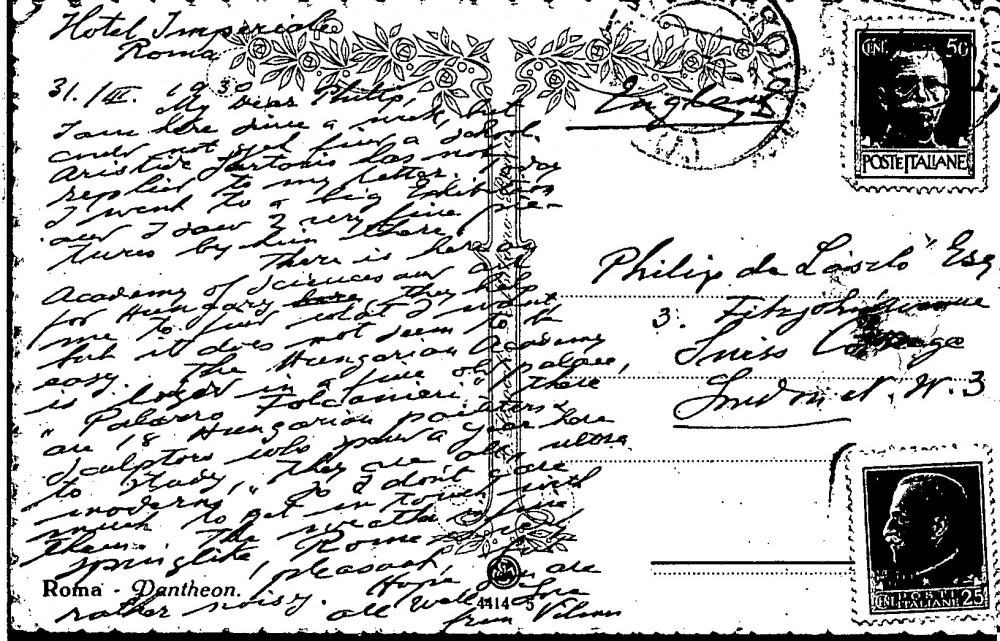 Hotel Imperiale
Roma
31./III. 1930
My dear Philip,
I am here since a week, but
could not yet find a school.
Aristide Sartorio has now
replied to my letter. Today
I went to a big Exhibition
and I saw 2 very fine pic-
tures by him there.
There is here an
Academy of Sciences and Art
for Hungary here, they
me to find what I want
but it does not seem to be
easy. The Hungarian Academy
is lodged in a fine old palace,
"Palazzo Falconieri" there
are 18 Hungarian painters &
sculptors who spend a year here
to study, they are all ultra
modern, so I don't care
much to get in touch with
them. The weather is fine
springlike, Rome
pleasant,
rather noisy. Hope you are
all well. Love
from Vilmos
Roma - Pantheon.
4414-5
England
Philip de László Esq
3. Fitzjohn's Avenue
Swiss Cottage
London N.W.3
CENT. 50
POSTE ITALIANE
POSTE
CENT. ITALIANE 25